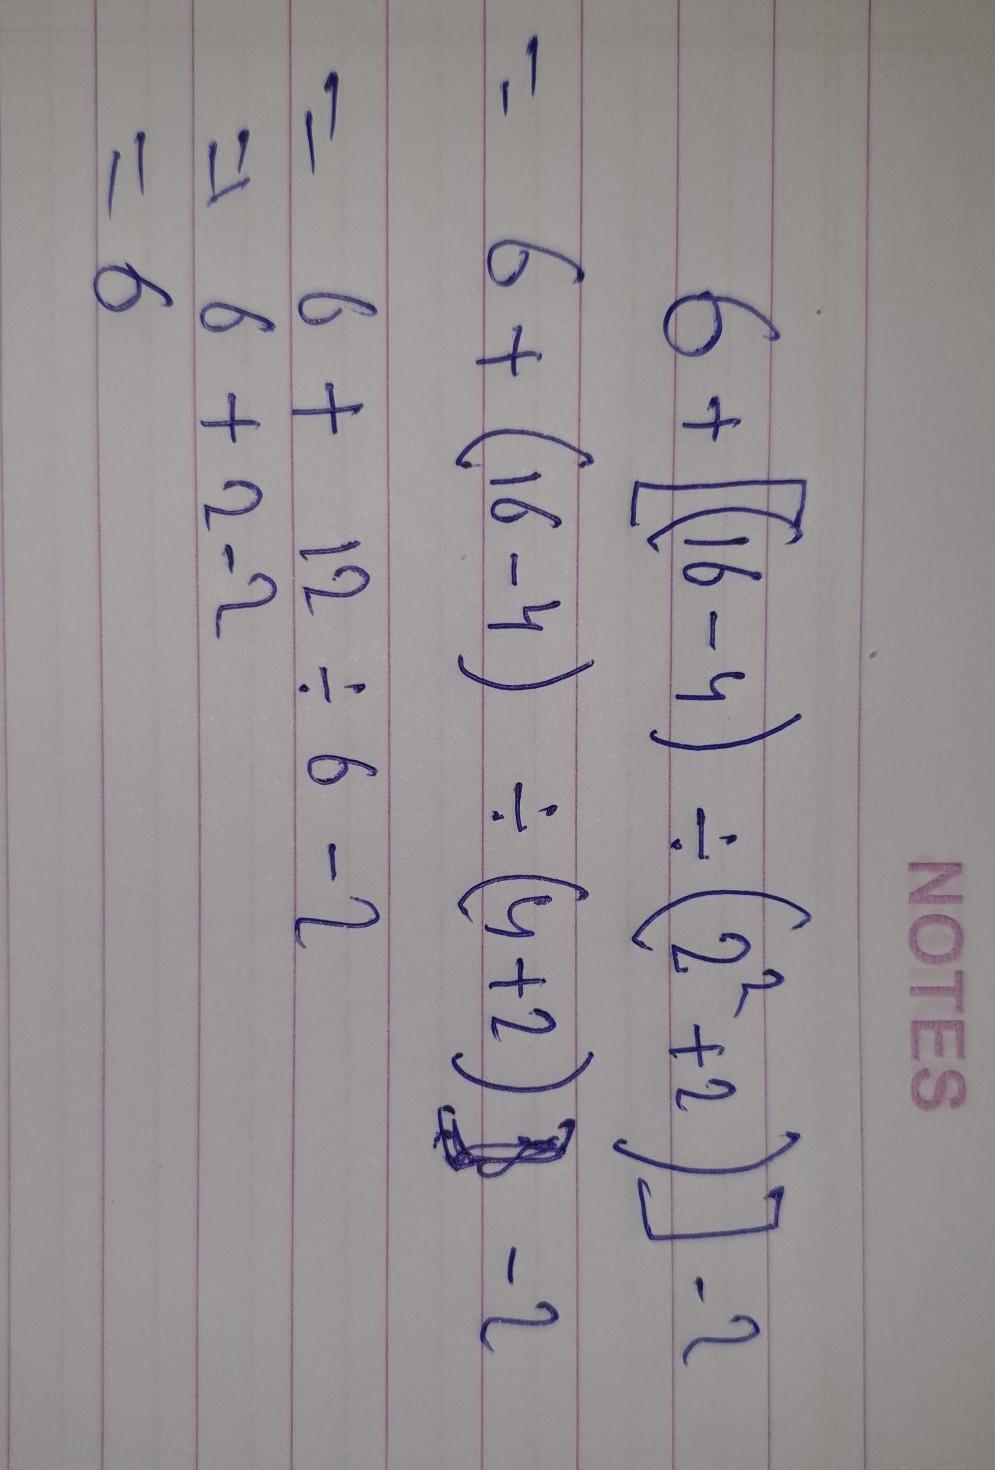 NOTES
6 + [(16 - 4) ÷ (2² + 2)] - 2
= 6 + (16 - 4) ÷ (4 + 2) - 2
= 6 + 12 ÷ 6 - 2
= 6 + 2 - 2
= 6